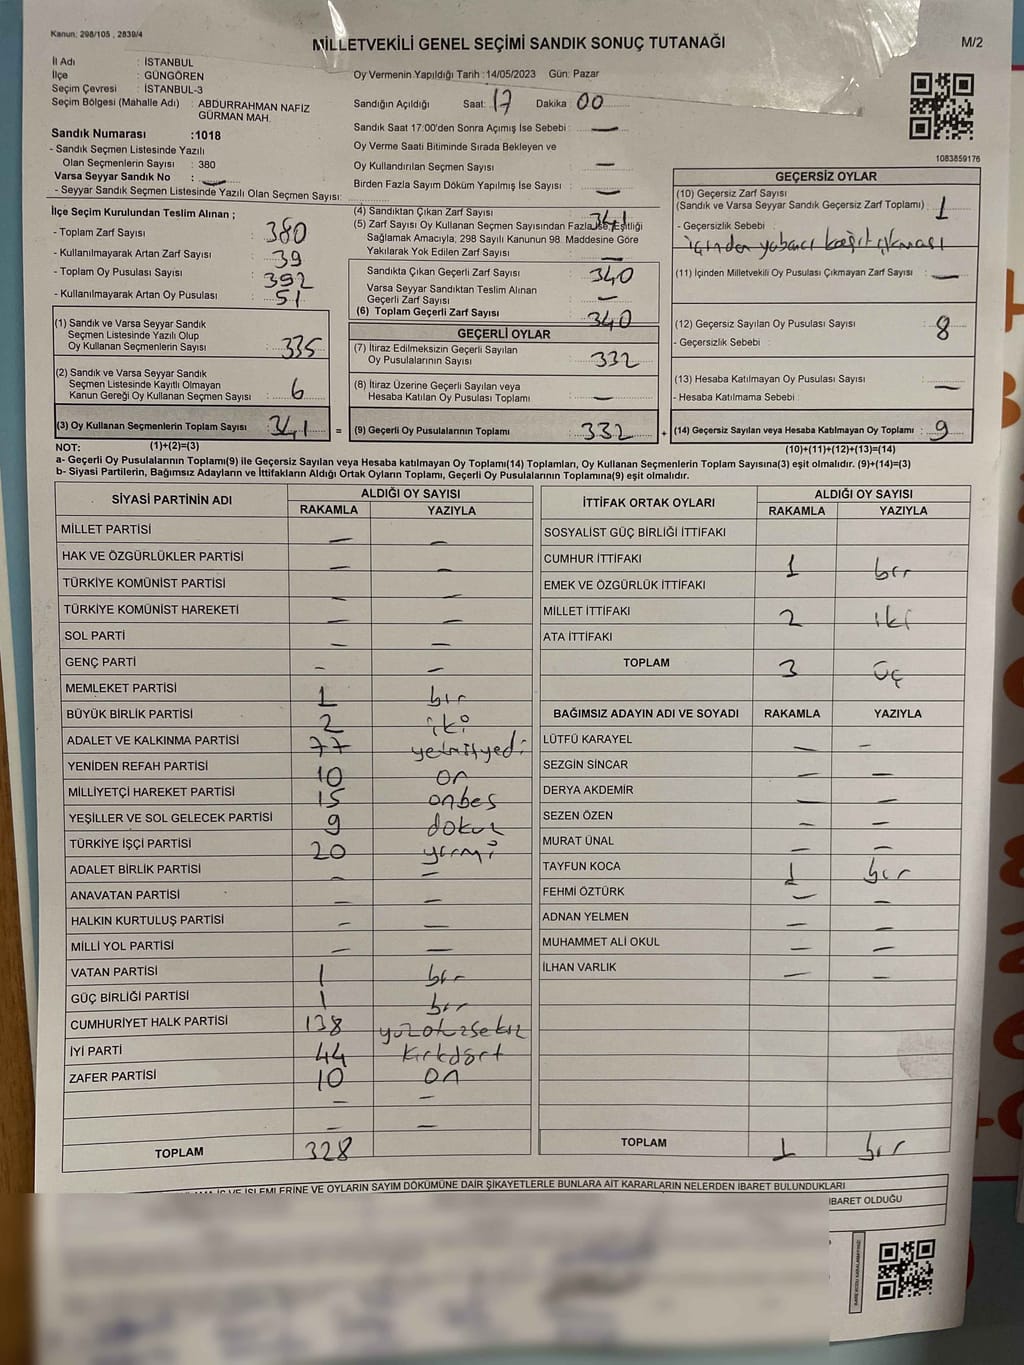 Kanun: 298/105 , 2839/4
MİLLETVEKİLİ GENEL SEÇİMİ SANDIK SONUÇ TUTANAĞI
M/2
İl Adı : İSTANBUL
İlçe : GÜNGÖREN
Seçim Çevresi : İSTANBUL-3
Seçim Bölgesi (Mahalle Adı) : ABDURRAHMAN NAFİZ
GÜRMAN MAH.
Sandık Numarası :1018
- Sandık Seçmen Listesinde Yazılı
Olan Seçmenlerin Sayısı : 380
Varsa Seyyar Sandık No : —
- Seyyar Sandık Seçmen Listesinde Yazılı Olan Seçmen Sayısı:
Oy Vermenin Yapıldığı Tarih :14/05/2023 Gün: Pazar
Sandığın Açıldığı Saat: 17 Dakika : 00
Sandık Saat 17:00'den Sonra Açımış İse Sebebi : —
Oy Verme Saati Bitiminde Sırada Bekleyen ve
Oy Kullandırılan Seçmen Sayısı : —
Birden Fazla Sayım Döküm Yapılmış İse Sayısı : —
1083859176
İlçe Seçim Kurulundan Teslim Alınan ;
- Toplam Zarf Sayısı : 380
- Kullanılmayarak Artan Zarf Sayısı : 39
- Toplam Oy Pusulası Sayısı : 392
- Kullanılmayarak Artan Oy Pusulası : 51
(1) Sandık ve Varsa Seyyar Sandık
Seçmen Listesinde Yazılı Olup
Oy Kullanan Seçmenlerin Sayısı : 335
(2) Sandık ve Varsa Seyyar Sandık
Seçmen Listesinde Kayıtlı Olmayan
Kanun Gereği Oy Kullanan Seçmen Sayısı : 6
(3) Oy Kullanan Seçmenlerin Toplam Sayısı : 341 =
(4) Sandıktan Çıkan Zarf Sayısı : 341
(5) Zarf Sayısı Oy Kullanan Seçmen Sayısından Fazla İse, Eşitliği
Sağlamak Amacıyla, 298 Sayılı Kanunun 98. Maddesine Göre
Yakılarak Yok Edilen Zarf Sayısı : —
Sandıkta Çıkan Geçerli Zarf Sayısı : 340
Varsa Seyyar Sandıktan Teslim Alınan
Geçerli Zarf Sayısı : —
(6) Toplam Geçerli Zarf Sayısı : 340
GEÇERLİ OYLAR
(7) İtiraz Edilmeksizin Geçerli Sayılan
Oy Pusulalarının Sayısı : 332
(8) İtiraz Üzerine Geçerli Sayılan veya
Hesaba Katılan Oy Pusulası Toplamı : —
(9) Geçerli Oy Pusulalarının Toplamı : 332 +
GEÇERSİZ OYLAR
(10) Geçersiz Zarf Sayısı
(Sandık ve Varsa Seyyar Sandık Geçersiz Zarf Toplamı) : 1
- Geçersizlik Sebebi :
içinden yabancı kağıt çıkması
(11) İçinden Milletvekili Oy Pusulası Çıkmayan Zarf Sayısı : —
(12) Geçersiz Sayılan Oy Pusulası Sayısı : 8
- Geçersizlik Sebebi :
(13) Hesaba Katılmayan Oy Pusulası Sayısı : —
- Hesaba Katılmama Sebebi :
(14) Geçersiz Sayılan veya Hesaba Katılmayan Oy Toplamı : 9
NOT: (1)+(2)=(3) (10)+(11)+(12)+(13)=(14)
a- Geçerli Oy Pusulalarının Toplamı(9) ile Geçersiz Sayılan veya Hesaba katılmayan Oy Toplamı(14) Toplamları, Oy Kullanan Seçmenlerin Toplam Sayısına(3) eşit olmalıdır. (9)+(14)=(3)
b- Siyasi Partilerin, Bağımsız Adayların ve İttifakların Aldığı Ortak Oyların Toplamı, Geçerli Oy Pusulalarının Toplamına(9) eşit olmalıdır.
SİYASİ PARTİNİN ADI ALDIĞI OY SAYISI
RAKAMLA YAZIYLA
MİLLET PARTİSİ — —
HAK VE ÖZGÜRLÜKLER PARTİSİ — —
TÜRKİYE KOMÜNİST PARTİSİ — —
TÜRKİYE KOMÜNİST HAREKETİ — —
SOL PARTİ — —
GENÇ PARTİ — —
MEMLEKET PARTİSİ 1 bir
BÜYÜK BİRLİK PARTİSİ 2 iki
ADALET VE KALKINMA PARTİSİ 77 yetmişyedi
YENİDEN REFAH PARTİSİ 10 on
MİLLİYETÇİ HAREKET PARTİSİ 15 onbeş
YEŞİLLER VE SOL GELECEK PARTİSİ 9 dokuz
TÜRKİYE İŞÇİ PARTİSİ 20 yirmi
ADALET BİRLİK PARTİSİ — —
ANAVATAN PARTİSİ — —
HALKIN KURTULUŞ PARTİSİ — —
MİLLİ YOL PARTİSİ — —
VATAN PARTİSİ 1 bir
GÜÇ BİRLİĞİ PARTİSİ 1 bir
CUMHURİYET HALK PARTİSİ 138 yüzotuzsekiz
İYİ PARTİ 44 kırkdört
ZAFER PARTİSİ 10 on
— —
— —
TOPLAM 328
İTTİFAK ORTAK OYLARI ALDIĞI OY SAYISI
RAKAMLA YAZIYLA
SOSYALİST GÜÇ BİRLİĞİ İTTİFAKI
CUMHUR İTTİFAKI 1 bir
EMEK VE ÖZGÜRLÜK İTTİFAKI
MİLLET İTTİFAKI 2 iki
ATA İTTİFAKI
TOPLAM 3 üç
BAĞIMSIZ ADAYIN ADI VE SOYADI RAKAMLA YAZIYLA
LÜTFÜ KARAYEL — —
SEZGİN SİNCAR — —
DERYA AKDEMİR — —
SEZEN ÖZEN — —
MURAT ÜNAL — —
TAYFUN KOCA 1 bir
FEHMİ ÖZTÜRK — —
ADNAN YELMEN — —
MUHAMMET ALİ OKUL — —
İLHAN VARLIK — —
TOPLAM 1 bir
İŞLEMLERİNE VE OYLARIN SAYIM DÖKÜMÜNE DAİR ŞİKAYETLERLE BUNLARA AİT KARARLARIN NELERDEN İBARET BULUNDUKLARI
İBARET OLDUĞU